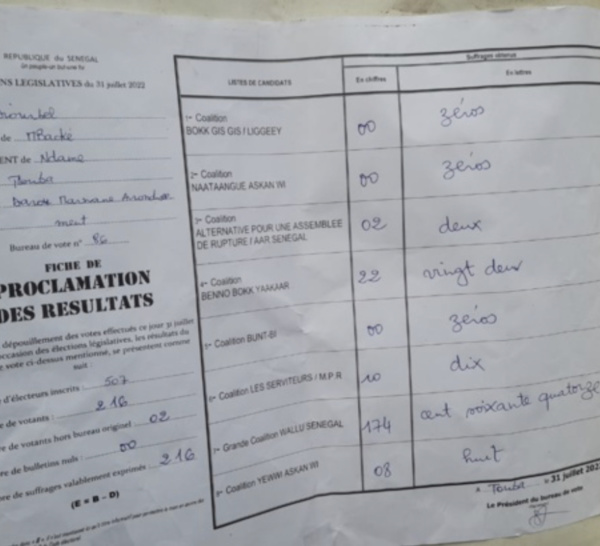 REPUBLIQUE du SENEGAL
Un peuple-un but-une foi
NS LEGISLATIVES du 31 juillet 2022
de Mbacké
ENT de Ndame
Touba
ment
Bureau de vote n° 86
FICHE DE
PROCLAMATION
DES RESULTATS
dépouillement des votes effectués ce jour 31 juillet
occasion des élections législatives, les résultats du
e vote ci-dessus mentionné, se présentent comme
suit :
d'électeurs inscrits : 507
re de votants : 216
re de votants hors bureau originel : 02
re de bulletins nuls : 00
re de suffrages valablement exprimés : 216
(E = B - D)
Suffrages obtenus
LISTES DE CANDIDATS En chiffres En lettres
1re Coalition
BOKK GIS GIS / LIGGEEY 00 zéros
2e Coalition
NAATAANGUE ASKAN WI 00 zéros
3e Coalition
ALTERNATIVE POUR UNE ASSEMBLEE
DE RUPTURE / AAR SENEGAL 02 deux
4e Coalition
BENNO BOKK YAAKAAR 22 vingt deux
5e Coalition BUNT-BI 00 zéros
6e Coalition LES SERVITEURS / M.P.R 10 dix
7e Grande Coalition WALLU SENEGAL 174 cent soixante quatorze
8e Coalition YEWWI ASKAN WI 08 huit
A Touba le 31 juillet 202
Le Président du bureau de vote